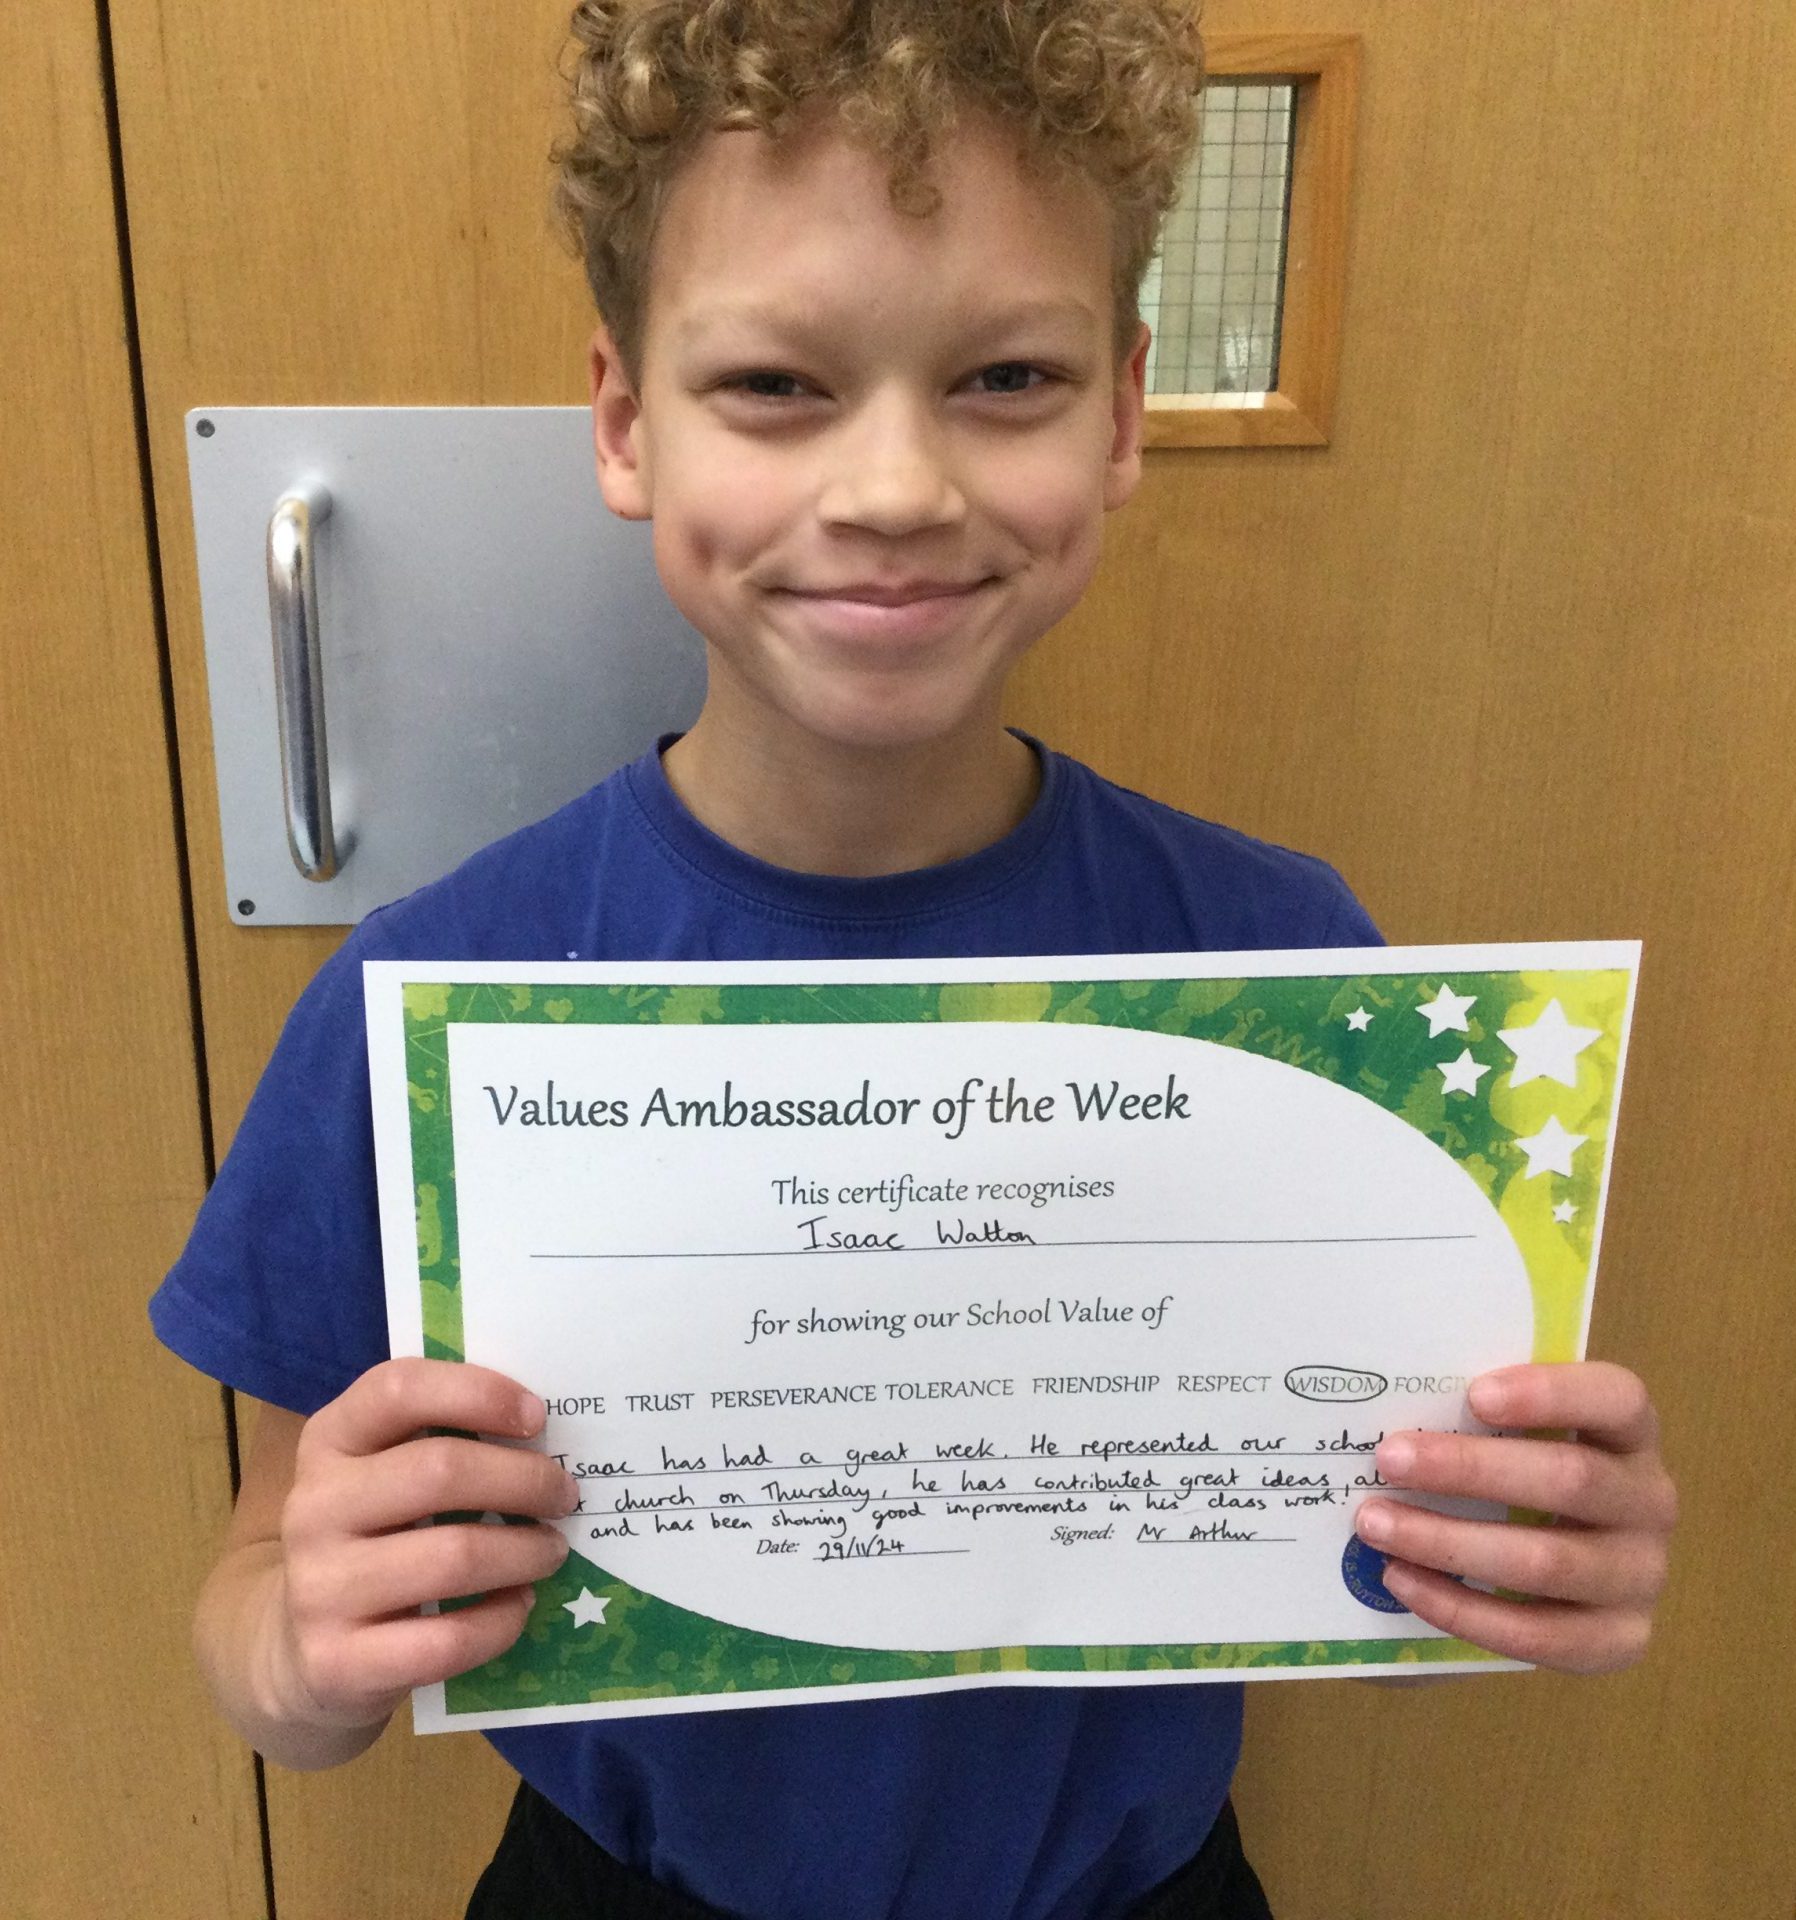 Values Ambassador of the Week
This certificate recognises
Isaac Watton
for showing our School Value of
HOPE TRUST PERSEVERANCE TOLERANCE FRIENDSHIP RESPECT WISDOM
Isaac has had a great week. He represented our school
church on Thursday, he has contributed great ideas
and has been showing good improvements in his class work!
Date: 29/11/24 Signed: Mr Arthur